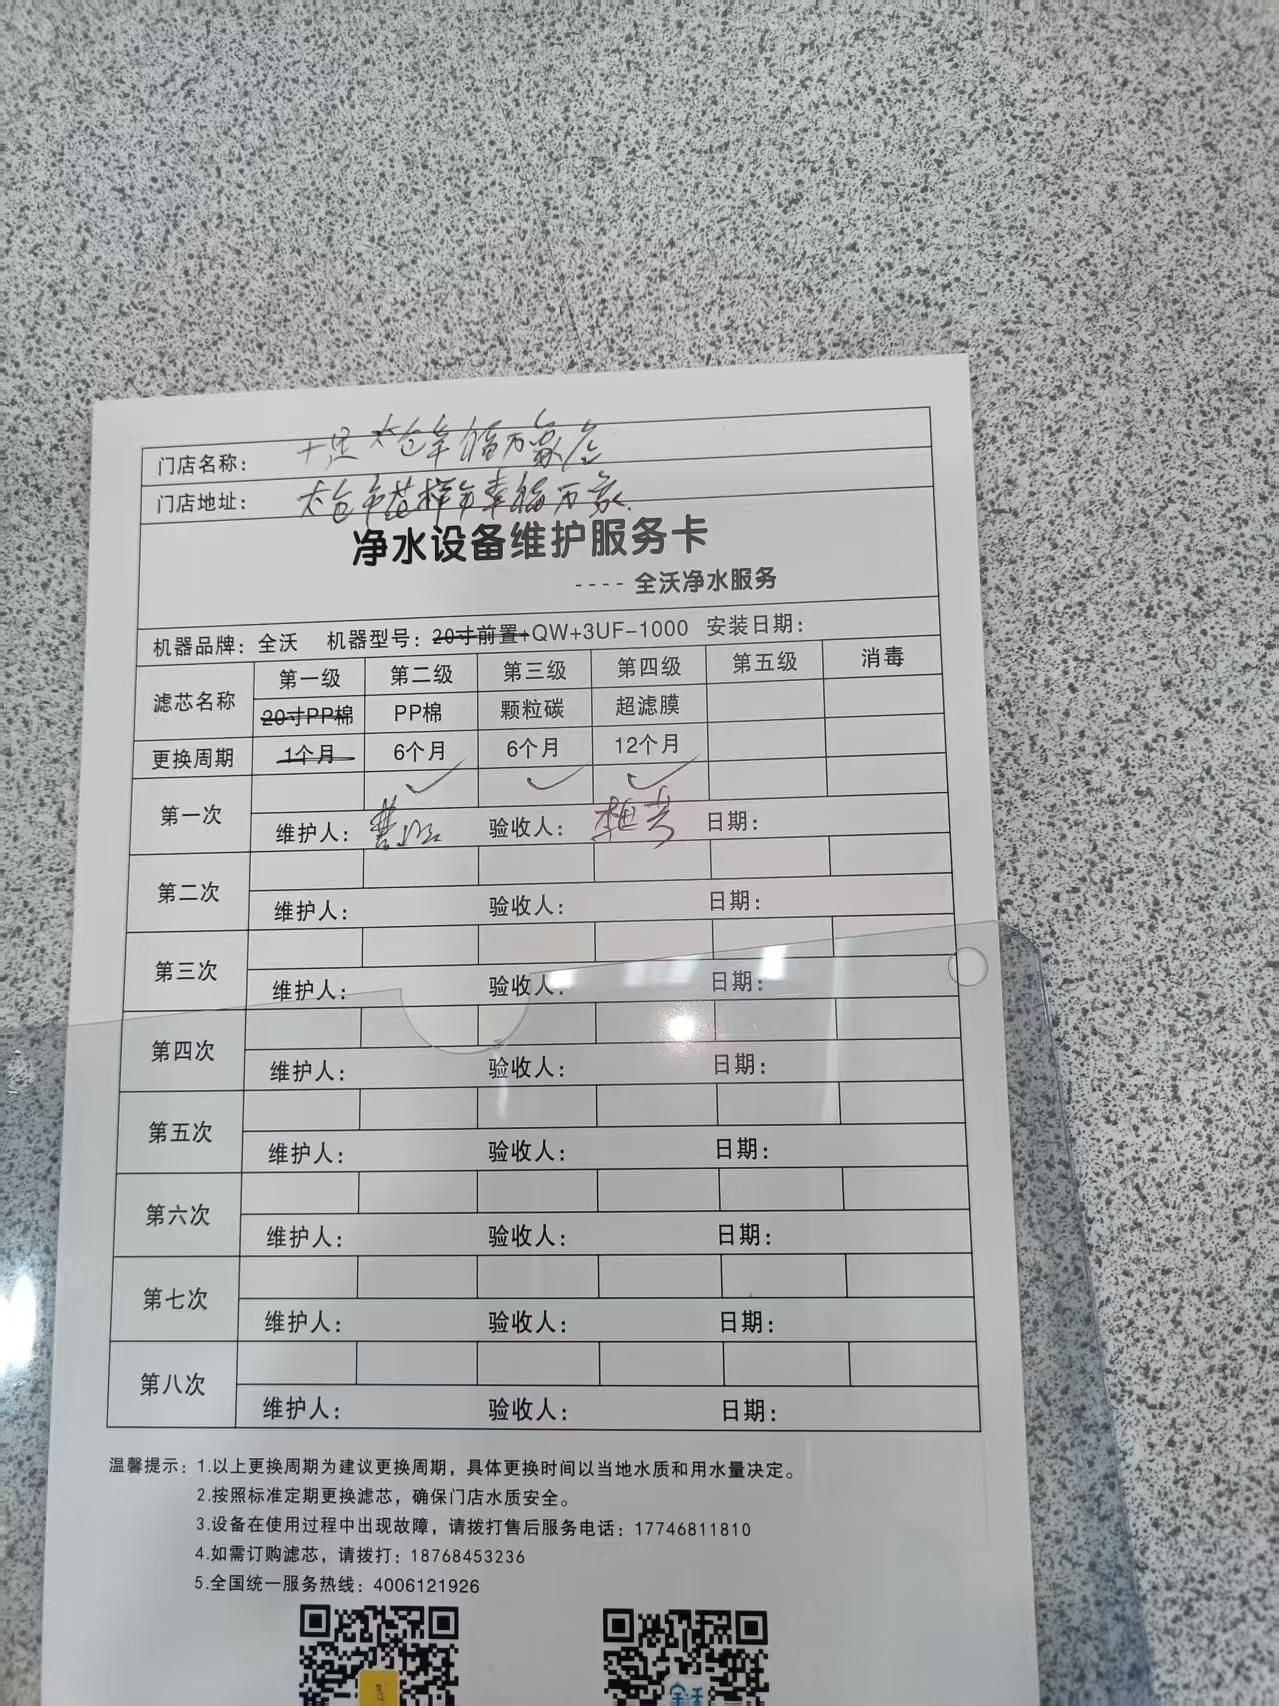 门店名称： 十足太仓幸福万象店
门店地址： 太仓市 幸福万象
净水设备维护服务卡
---- 全沃净水服务
机器品牌：全沃 机器型号：20寸前置+QW+3UF-1000 安装日期：
滤芯名称 第一级 第二级 第三级 第四级 第五级 消毒
20寸PP棉 PP棉 颗粒碳 超滤膜
更换周期 1个月 6个月 6个月 12个月
第一次 ✓ ✓ ✓
维护人： 验收人： 日期：
第二次
维护人： 验收人： 日期：
第三次
维护人： 验收人： 日期：
第四次
维护人： 验收人： 日期：
第五次
维护人： 验收人： 日期：
第六次
维护人： 验收人： 日期：
第七次
维护人： 验收人： 日期：
第八次
维护人： 验收人： 日期：
温馨提示：1.以上更换周期为建议更换周期，具体更换时间以当地水质和用水量决定。
2.按照标准定期更换滤芯，确保门店水质安全。
3.设备在使用过程中出现故障，请拨打售后服务电话：17746811810
4.如需订购滤芯，请拨打：18768453236
5.全国统一服务热线：4006121926